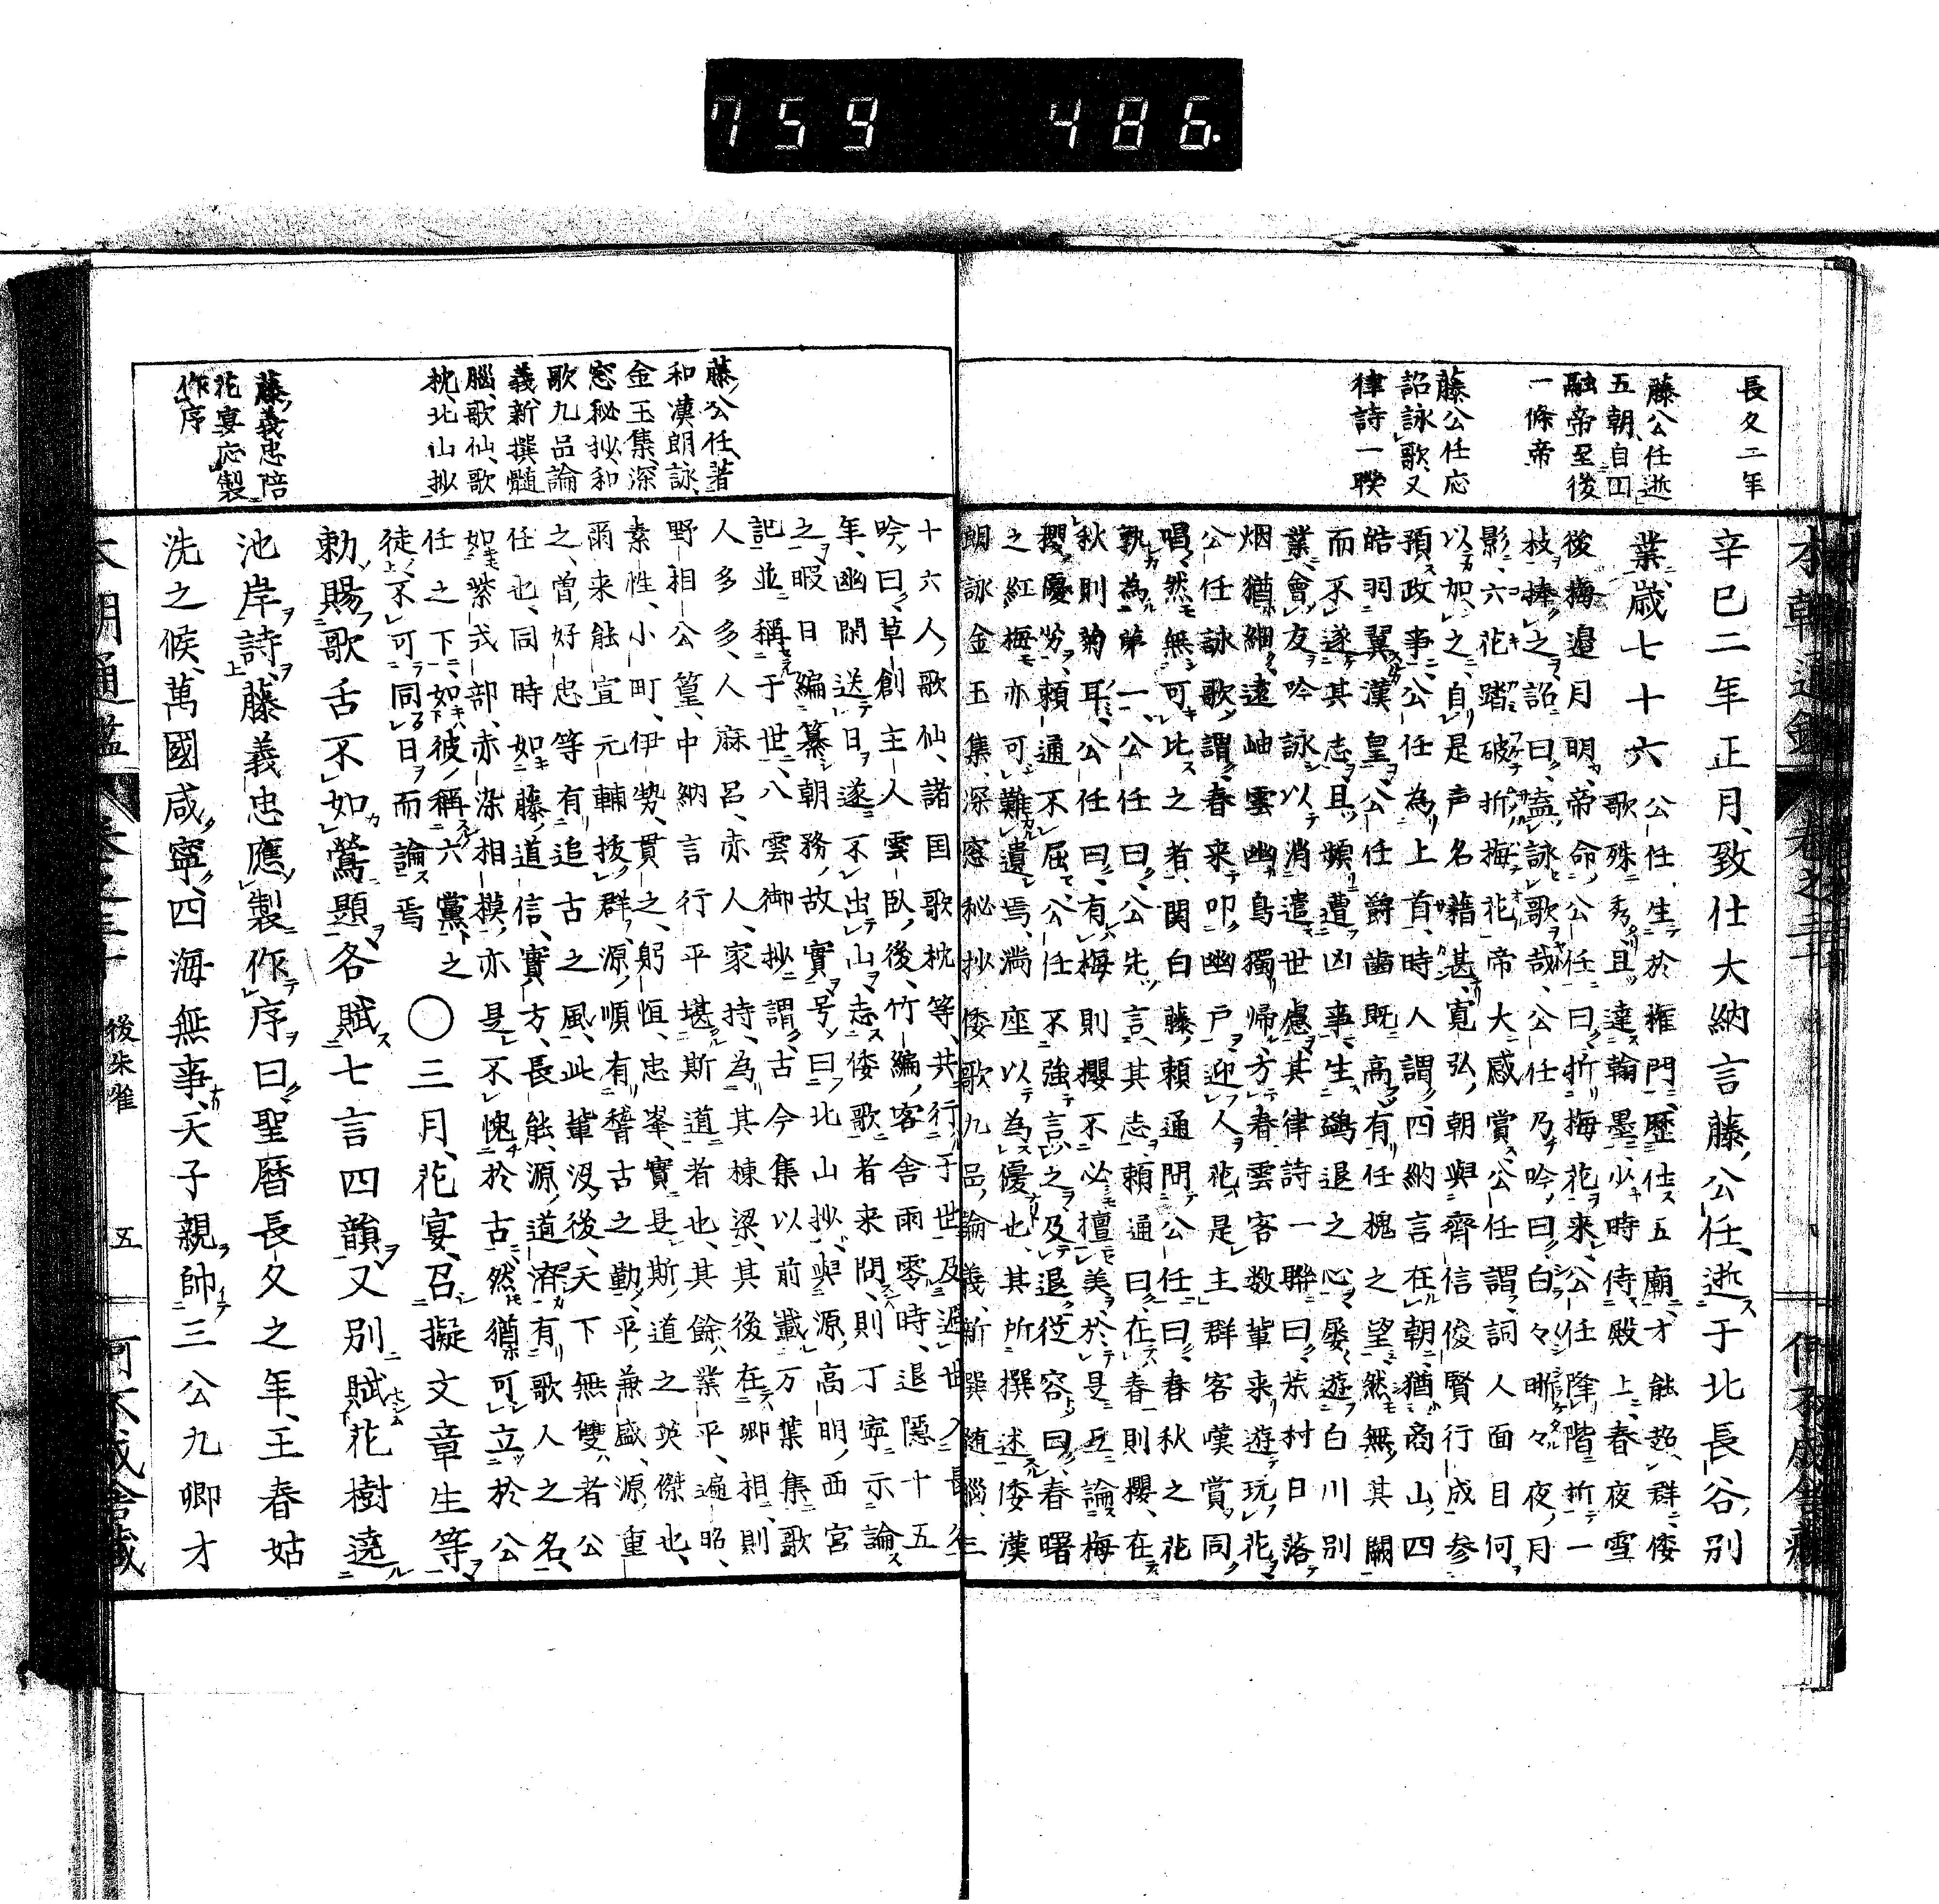 759 486.
長久二年
藤公任逝
五朝自円
融帝至後
一條帝
藤公任応
詔詠歌又
律詩一聯
辛巳二年正月致仕大納言藤公任逝于北長谷別
業歳七十六
公任生於権門歴仕五廟才能超群倭
歌殊秀且達翰墨少時侍殿上春夜雪
後梅邉月明帝命公任曰折梅花来公任降階折一
枝捧之詔曰盍詠歌哉公任乃吟曰白々晰々夜月
影六花踏破折梅花帝大感賞公任謂詞人面目何
以加之自是声名藉甚寛弘朝與齊信俊賢行成参
預政事公任為上首時人謂四納言在朝猶商山四
皓羽翼漢皇公任爵齒既高有任槐之望然無其闕
而不遂其志且頻遭凶事生鷁退之心屡遊白川別
業會友吟詠以消遣世慮其律詩一聯曰荒村日落
烟猶細遠岫雲幽鳥獨歸方春雲客数輩来遊玩花
公任詠歌謂春来叩幽戸迎人花是主群客嘆賞同
唱然無可比之者関白藤頼通問公任曰春秋之花
孰為第一公任曰公先言其志頼通曰在春則櫻在
秋則菊耳公任曰有梅則櫻不必擅美於是互論梅
櫻優劣頼通不屈公任不強言之及退従容曰春曙
之紅梅亦可難遺焉満座以為優也其所撰述倭漢
朗詠金玉集深窓秘抄倭歌九品論義新撰随腦三
藤公任著
和漢朗詠
金玉集深
窓秘抄和
歌九品論
義新撰髓
腦歌仙歌
枕北山抄
藤義忠陪
花宴応製
作序
十六人歌仙諸国歌枕等共行于世及遁世入長谷
吟曰草創主人雲臥後竹編客舎雨零時退隠十五
年幽閑送日遂不出山志倭歌者来問則丁寧示論
之暇日編纂朝務故實号曰北山抄與源高明西宮
記並稱于世八雲御抄謂古今集以前載万葉集歌
人多多人麻呂赤人家持為其棟梁其後在卿相則
野相公篁中納言行平堪斯道者也其餘業平遍昭
素性小町伊勢貫之躬恒忠峯實是斯道之英傑也
爾来能宣元輔抜群源順有稽古之勤平兼盛源重
之曽好忠等有追古之風此輩没後天下無雙者公
任也同時如藤道信實方長能源道済有歌人之名
如紫式部赤染相模亦是不愧於古然猶可立於公
任之下如彼稱六黨之
徒不可同日而論焉
〇三月花宴召擬文章生等
勅賜歌舌不如鶯題各賦七言四韻又別賦花樹遶
池岸詩藤義忠應製作序曰聖暦長久之年王春姑
洗之候萬國咸寧四海無事天子親帥三公九卿才
後朱雀
五